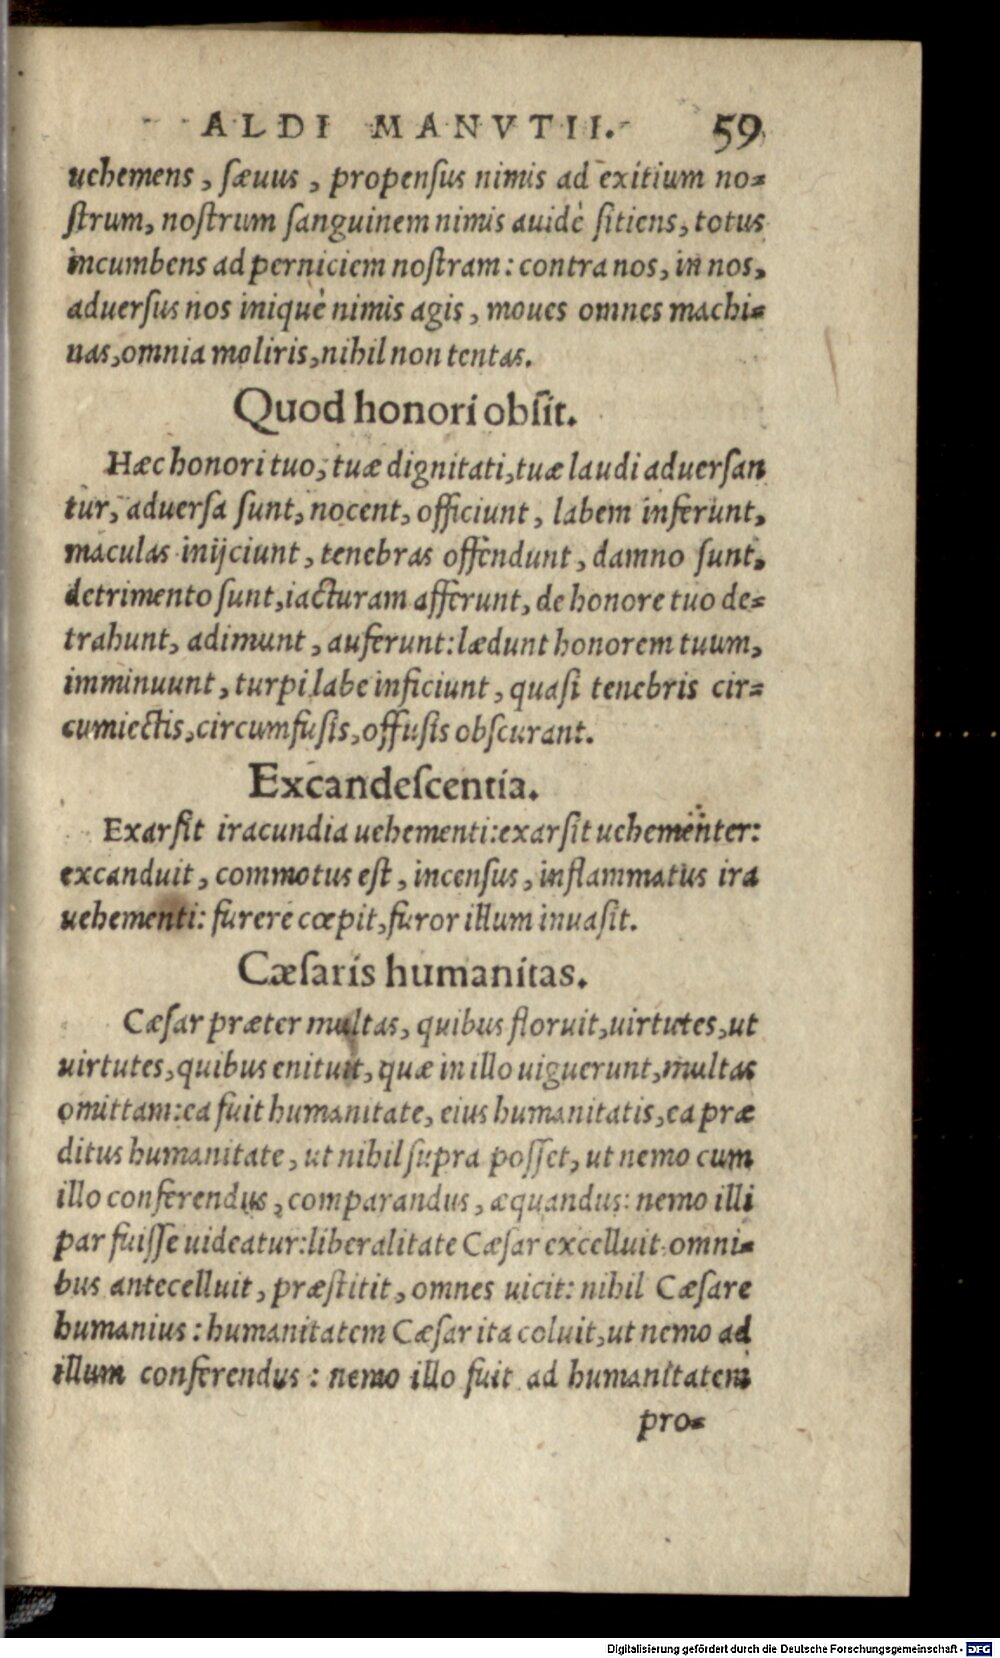 ALDI MANVTII. 59
uehemens, sæuus, propensus nimis ad exitium no=
strum, nostrum sanguinem nimis auidè sitiens, totus
incumbens ad perniciem nostram: contra nos, in nos,
aduersus nos iniquè nimis agis, moues omnes machi=
nas, omnia moliris, nihil non tentas.
Quod honori obsit.
Hæc honori tuo, tuæ dignitati, tuæ laudi aduersan
tur, aduersa sunt, nocent, officiunt, labem inferunt,
maculas inijciunt, tenebras offendunt, damno sunt,
detrimento sunt, iacturam afferunt, de honore tuo de=
trahunt, adimunt, auferunt: lædunt honorem tuum,
imminuunt, turpi labe inficiunt, quasi tenebris cir=
cumiectis, circumfusis, offusis obscurant.
Excandescentia.
Exarsit iracundia uehementi: exarsit uehementer:
excanduit, commotus est, incensus, inflammatus ira
uehementi: furere cœpit, furor illum inuasit.
Cæsaris humanitas.
Cæsar præter multas, quibus floruit, uirtutes, ut
uirtutes, quibus enituit, quæ in illo uiguerunt, multas
omittam: ea fuit humanitate, eius humanitatis, ea præ
ditus humanitate, ut nihil supra posset, ut nemo cum
illo conferendus, comparandus, æquandus: nemo illi
par fuisse uideatur: liberalitate Cæsar excelluit. omni=
bus antecelluit, præstitit, omnes uicit: nihil Cæsare
humanius: humanitatem Cæsar ita coluit, ut nemo ad
illum conferendus: nemo illo fuit ad humanitatem
pro=
Digitalisierung gefördert durch die Deutsche Forschungsgemeinschaft - DFG